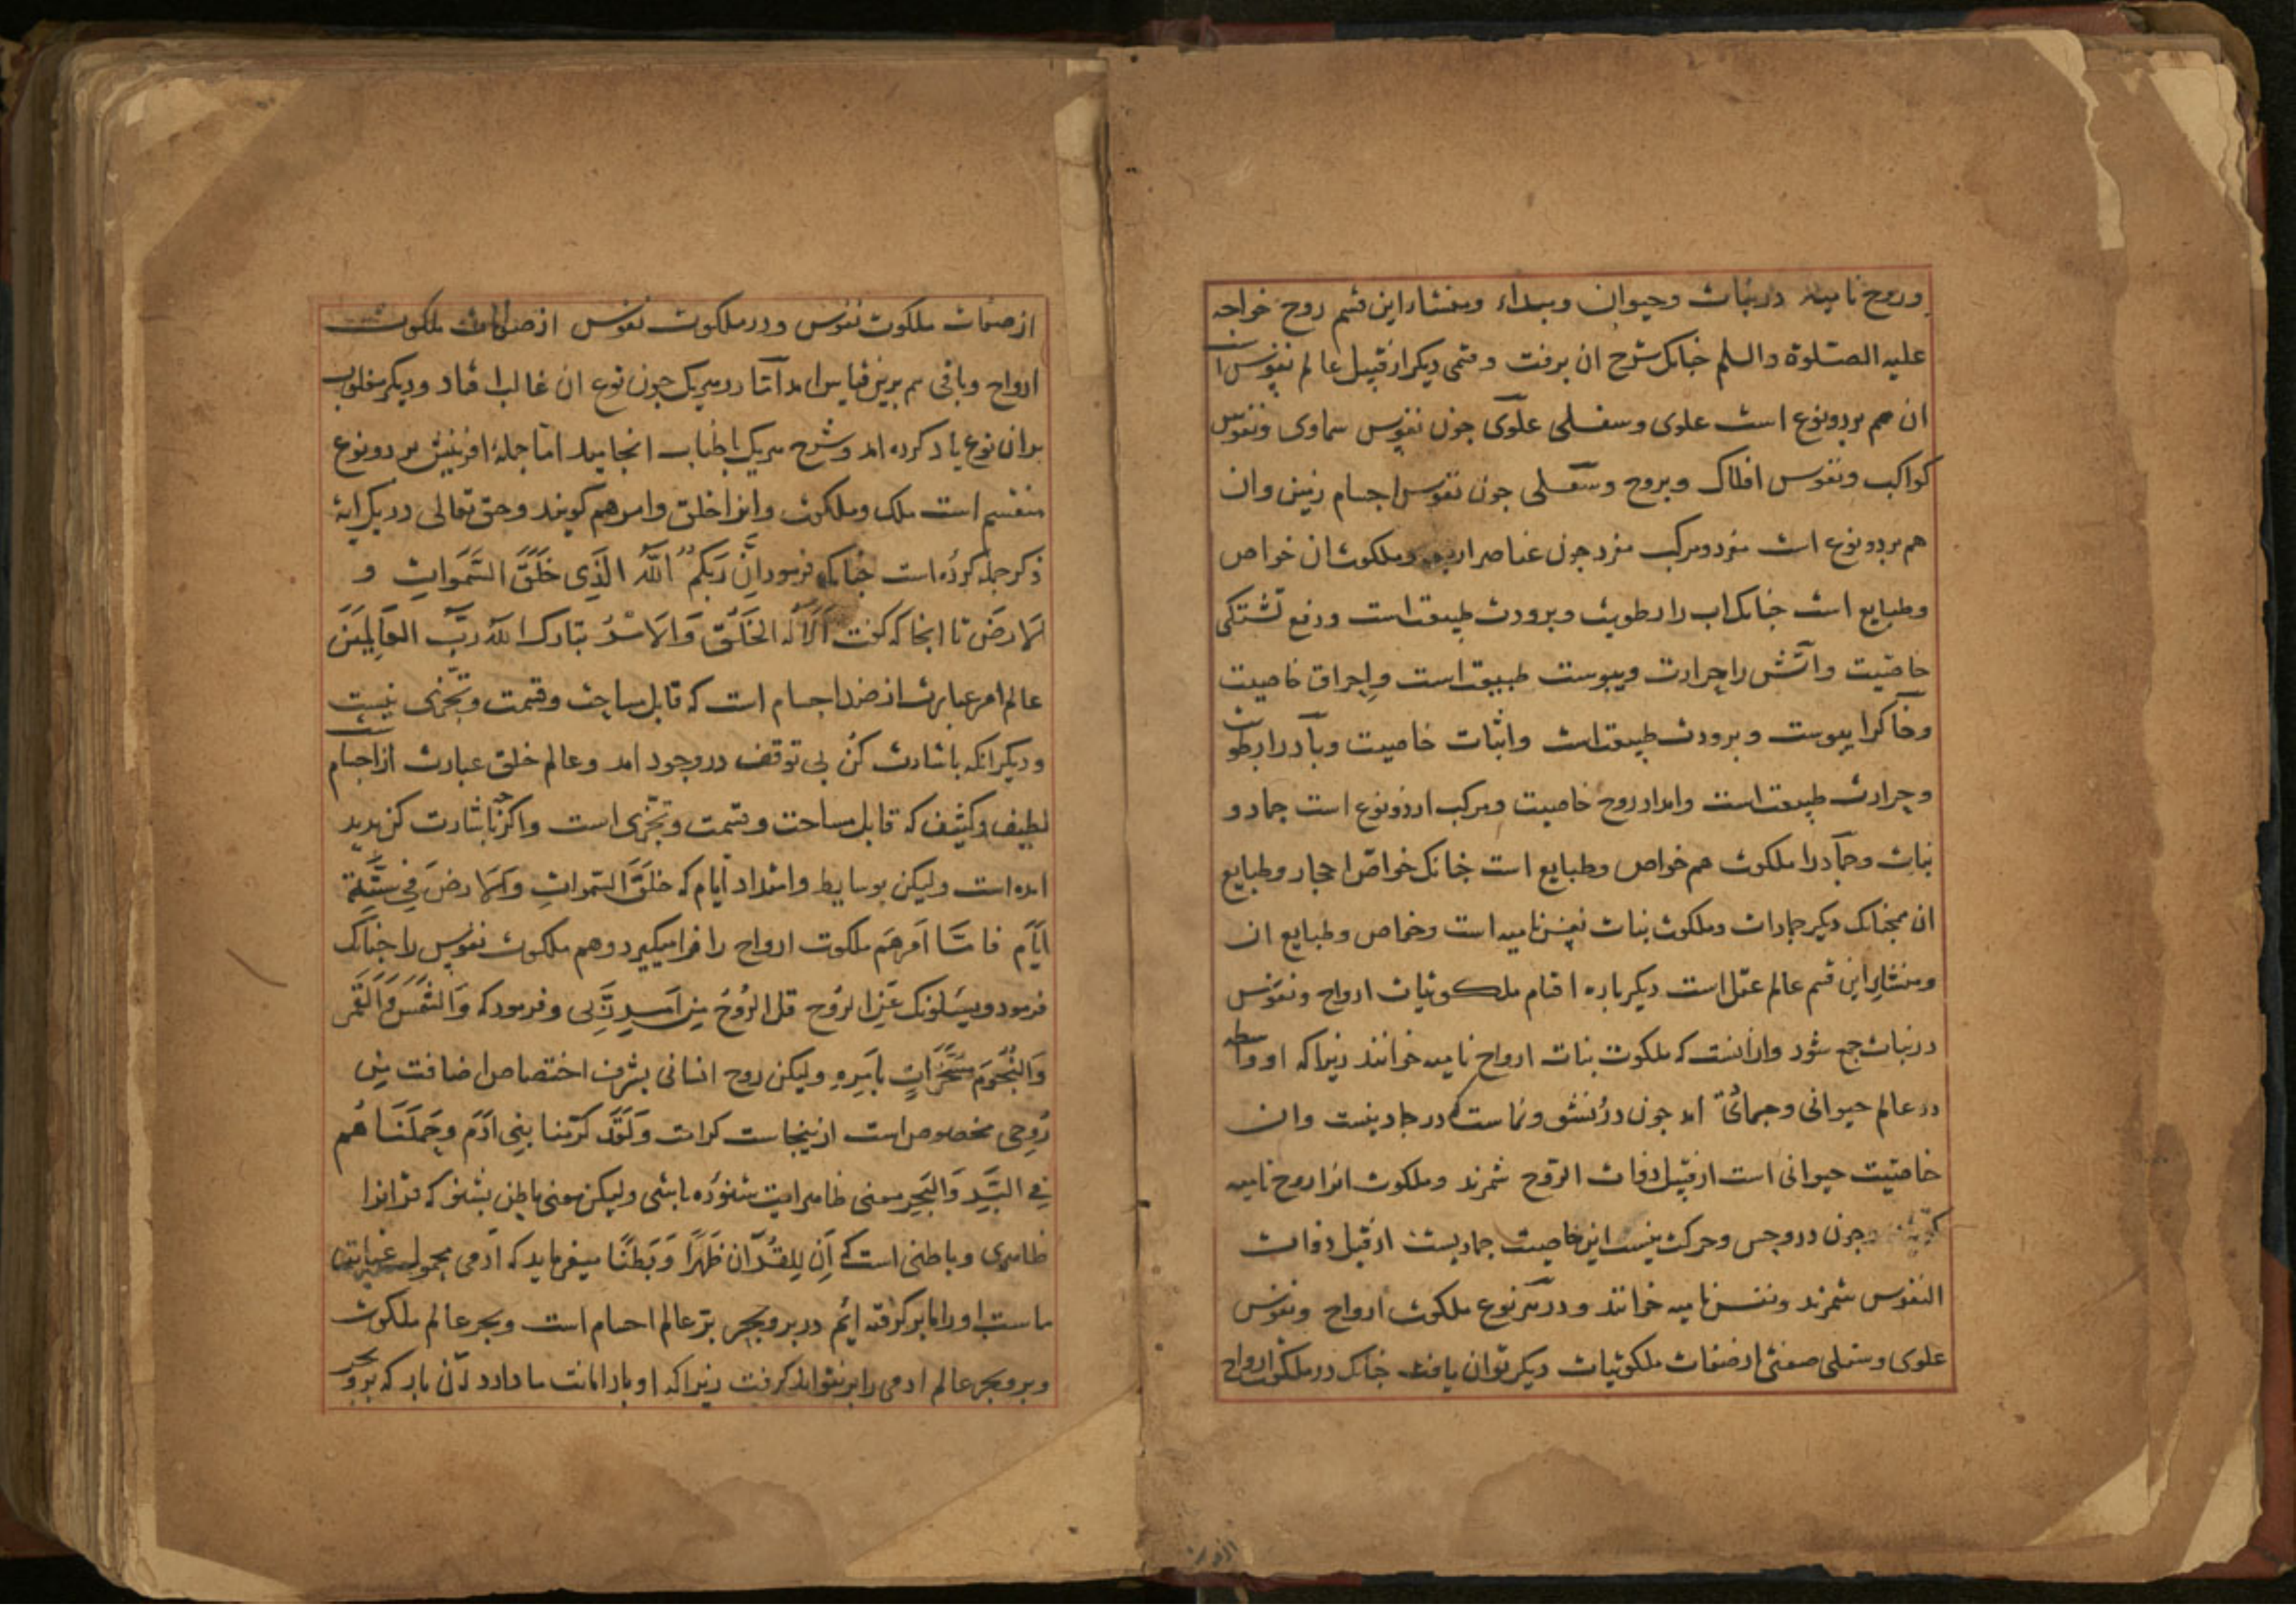 وروح نامیه در نبات و حیوان و مبداء و منشاء این قسم روح خواجه
علیه الصلوة والسلم چنانک شرح ان برفت و قسمی دیکر از قبیل عالم نفوس است
ان هم بر دو نوع است علوی و سفلی علوی جون نفوس سماوی و نفوس
کواکب و نفوس افلاک و بروج و سفلی جون نفوس اجسام زمین وان
هم بر دو نوع است مفرد و مرکب مفرد جون عناصر اربعه و ملکوت ان خواص
و طبایع است جنانک اب را رطوبت و برودت طبیعت است و رفع تشنکی
خاصیت و اتش را حرارت و یبوست طبیعت است و احراق خاصیت
و خاکرا یبوست و برودت طبیعت است و اثبات خاصیت و باد را رطوبت
و حرارت طبیعت است و امداد روح خاصیت و مرکب از دو نوع است جماد و
نبات و جماد را ملکوت هم خواص و طبایع است جنانک خواص احجار و طبایع
ان همجنانک دیکر جمادات و ملکوت نبات نفس نامیه است و خواص و طبایع ان
و منشاء این قسم عالم عقل است دیکر باره اقسام ملکوتیات ارواح و نفوس
در نبات جمع شود و ازانست که ملکوت نبات ارواح نامیه خوانند زیرا که او واسطه
در عالم حیوانی و جمادی امد جون درو نشو و نماست که در جماد نیست وان
خاصیت حیوانی است از قبیل ذوات الروح شمرند و ملکوت انرا روح نامیه
جون درو حس و حرکت نیست این خاصیت جمادیست از قبیل ذوات
النفوس شمرند و نفس نامیه خوانند و در هر نوع ملکوت ارواح و نفوس
علوی و سفلی صفتی از صفات ملکوتیات دیکر توان یافت جنانک در ملکوت ارواح
از صفات ملکوت نفوس و در ملکوت نفوس از صفات ملکوت
ارواح و باقی هم برین قیاس امد اما در هر یک جون نوع ان غالب افتاد و دیکر مغلوب
بدان نوع یاد کرده امد و شرح هر یک باطناب انجامد اما جملهٔ افرینش بر دو نوع
منقسم است ملک و ملکوت وانرا خلق و امر هم کویند و حق تعالی در یک ایهٔ
ذکر جمله کرده است جنانک فرمود اِنَّ رَبَّکُمُ اللهُ الَّذِی خَلَقَ السَّمَوَاتِ وَ
الاَرضَ تا انجا که کفت اَلاَ لَهُ الخَلقُ وَالاَمْرُ تبارک الله رَبُّ العَالَمِینَ
عالم امر عبارت از ضد اجسام است که قابل مساحت و قسمت و تجزی نیست
و دیکر انکه باشارت کُن بی توقف در وجود امد و عالم خلق عبارت از اجسام است
لطیف و کثیف که قابل مساحت و قسمت و تجزی است و اکرجه باشارت کن پدید
امده است ولیکن بوسایط و امتداد ایام که خَلَقَ السَّموَاتِ وَالاَرضَ فِی سِتَّةِ
اَیَّامٍ فامّا امر هم ملکوت ارواح را فرا میکیرد و هم ملکوت نفوس را جنانک
فرمود و یسئلونک عَنِ الرُّوح قل الرُّوحُ مِن اَمرِ رَبّی و فرمود که وَالشَّمسَ وَالقَمَرَ
وَالنُّجُومَ مُسَخَّرَاتٍ بِاَمرِهِ ولیکن روح انسانی بشرف اختصاص اضافت مِن
رُوحِی مخصوص است ازینجاست کرامت وَلَقَد کَرَّمنَا بَنِی ادَمَ وَحَمَلنَاهُم
فِی البَرِّ وَالبَحرِ معنی ظاهر ایت شنوده باشی ولیکن معنی باطن بشنو که قرانرا
ظاهری و باطنی است که اِنَّ لِلقُرآن ظَهرًا وَ بَطنًا میفرماید که آدمی محمول عنایت
ماست او را ما بر کرفته ایم در بر و بحر بر عالم اجسام است و بحر عالم ملکوت
و بر و بحر عالم ادمی را بر نتواند کرفت زیرا که او بار امانت ما دارد ان بار که بر و بحر